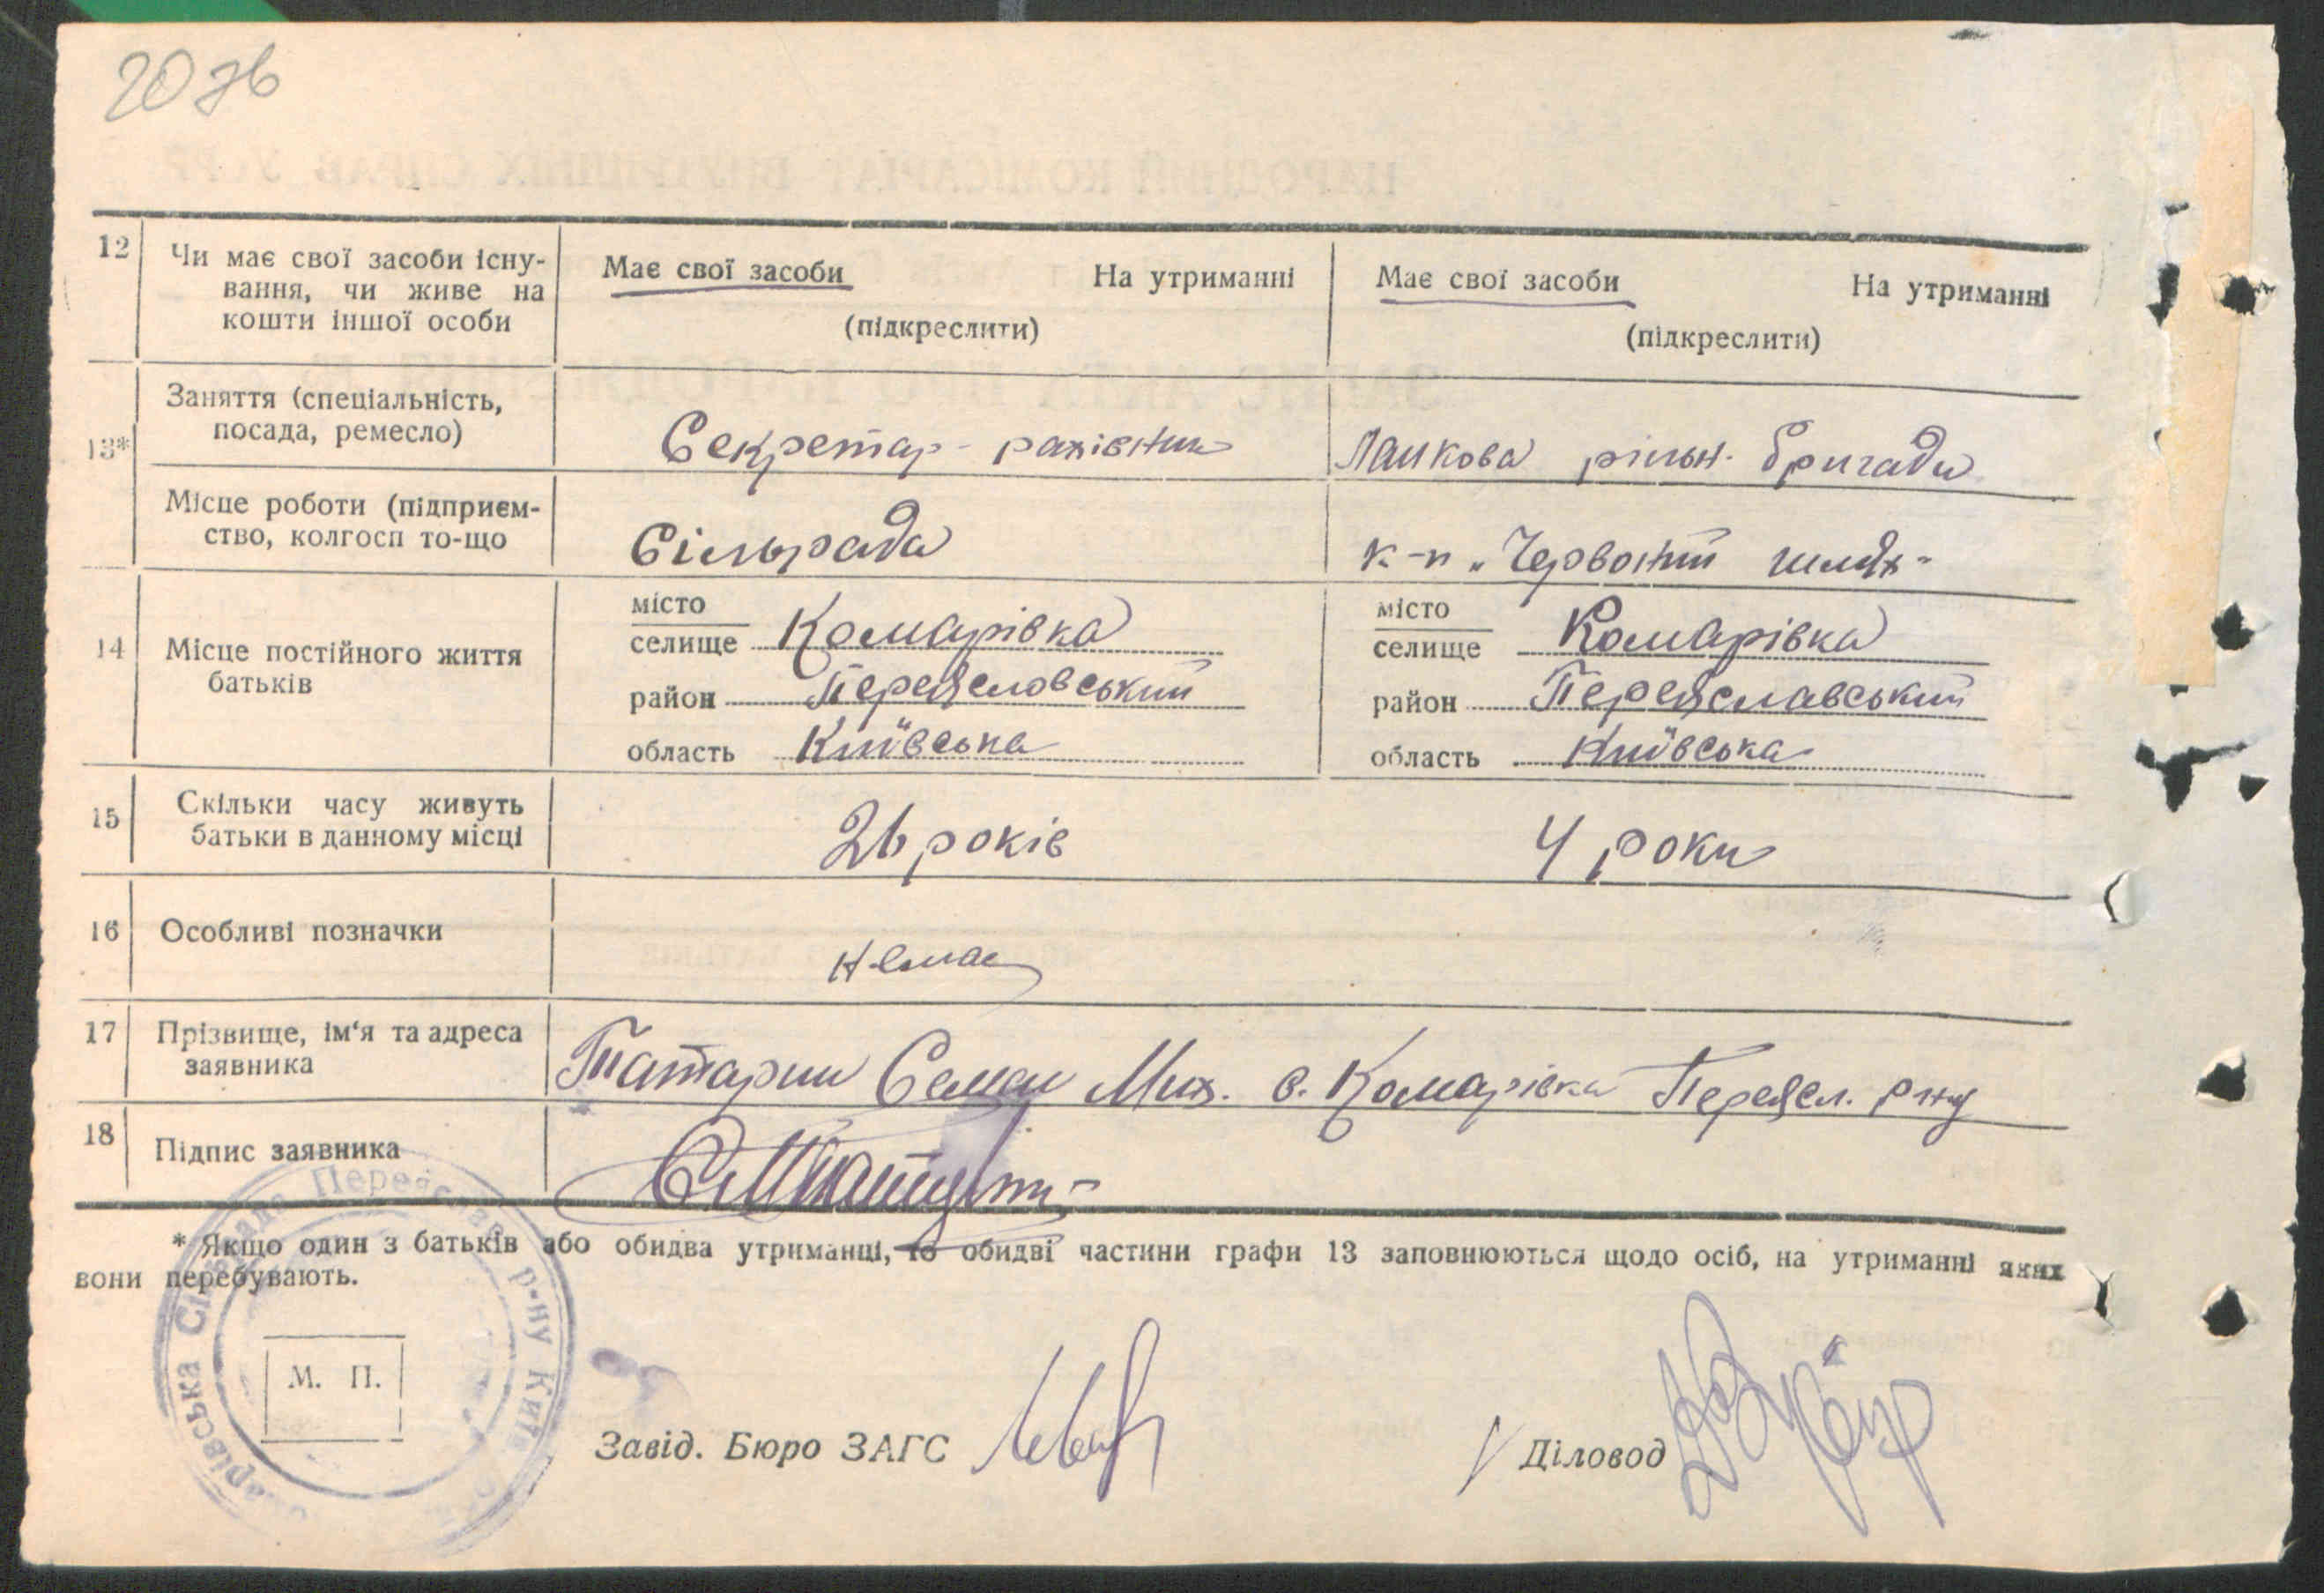 20 зв
12 Чи має свої засоби існу-
вання, чи живе на
кошти іншої особи
Має свої засоби На утриманні
(підкреслити)
Має свої засоби На утриманні
(підкреслити)
13*
Заняття (спеціальність,
посада, ремесло)
Секретар-рахівник
Ланкова рільн. бригади
Місце роботи (підприєм-
ство, колгосп то-що
Сільрада
к-п „Червоний шлях"
14 Місце постійного життя
батьків
місто
селище Комарівка
район Переясловський
область Київська
місто
селище Комарівка
район Переяславський
область Київська
15 Скільки часу живуть
батьки в данному місці
26 років
4 роки
16 Особливі позначки
немає
17 Прізвище, ім'я та адреса
заявника
Татарин Семен Мих. с. Комарівка Переясл. р-ну
18 Підпис заявника
* Якщо один з батьків або обидва утриманці, то обидві частини графи 13 заповнюються щодо осіб, на утриманні яких
вони перебувають.
М. П.
Завід. Бюро ЗАГС
Діловод